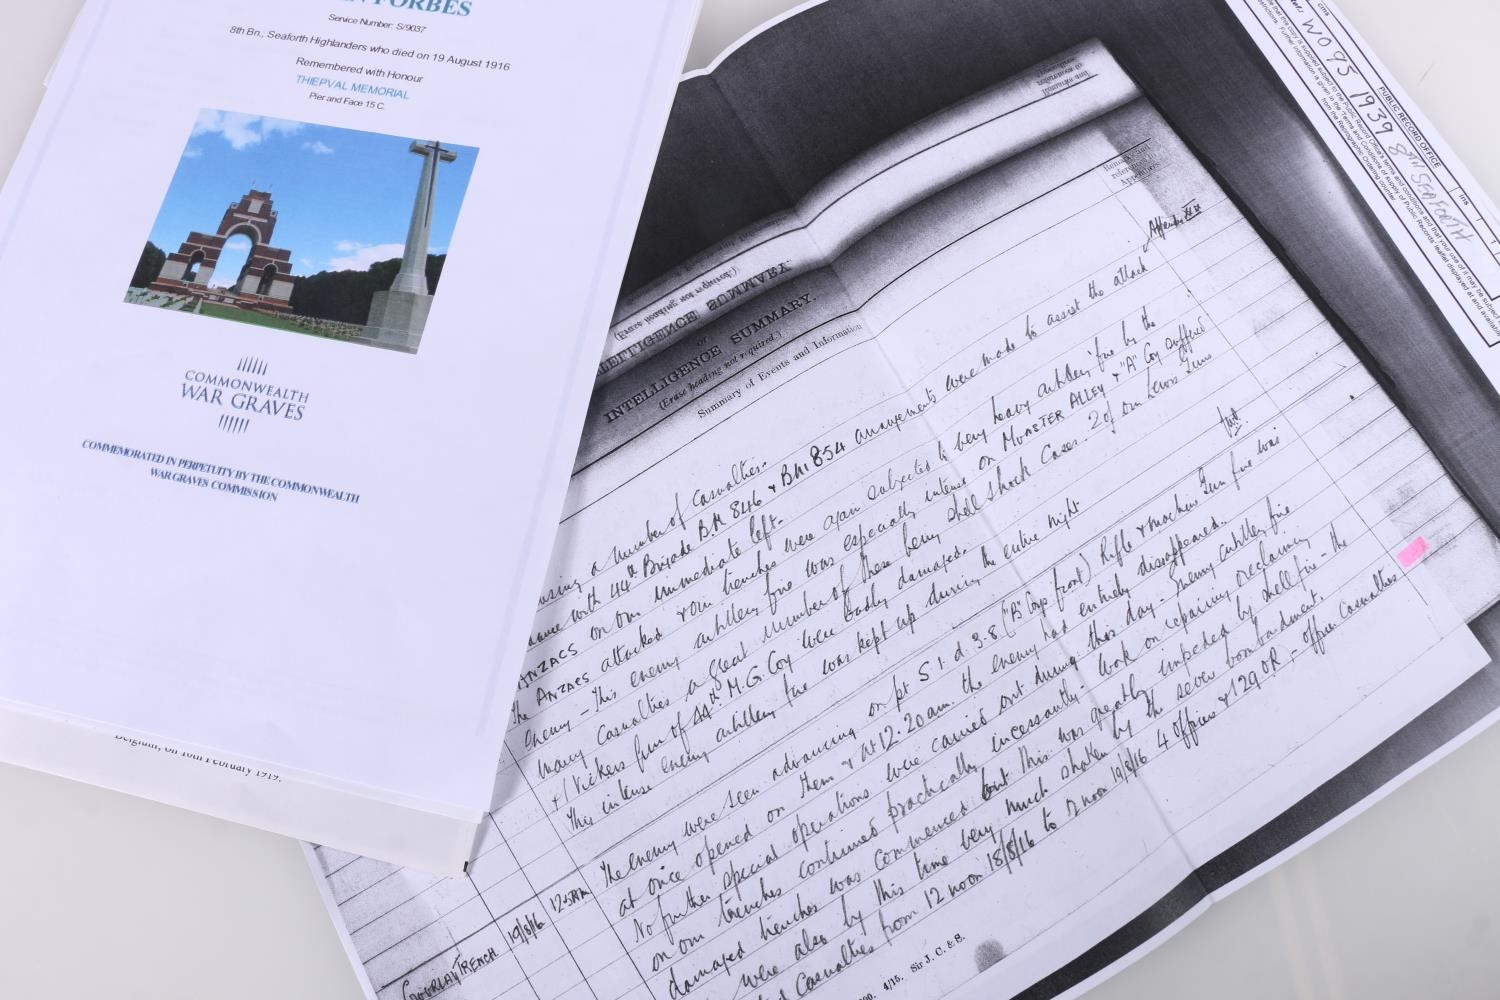 FORBES
Service Number: S/9037
8th Bn., Seaforth Highlanders who died on 19 August 1916
Remembered with Honour
THIEPVAL MEMORIAL
Pier and Face 15 C.
COMMONWEALTH
WAR GRAVES
COMMEMORATED IN PERPETUITY BY THE COMMONWEALTH
WAR GRAVES COMMISSION
Belgium, on 10th February 1919.
PUBLIC RECORD OFFICE
cms
ins
WO 95 1939 8TH SEAFORTH
INTELLIGENCE SUMMARY
(Erase heading not required.)
or
INTELLIGENCE SUMMARY.
(Erase heading not required.)
Summary of Events and Information
Appendix
a number of casualties.
with 44th Brigade B.M. 846 & BM 854 arrangements were made to assist the attack
ANZACS on our immediate left.
The ANZACS attacked & our trenches were again subjected to very heavy artillery fire by the
Enemy – This enemy artillery fire was especially intense on MUNSTER ALLEY & "A" Coy suffered
many casualties a great number of these being shell shock cases. 2 of our Lewis Guns
+ 1 Vickers Gun of 44th M.G. Coy were badly damaged.
This intense enemy artillery fire was kept up during the entire night
GOURLAY TRENCH 19/8/16 12.5 AM The enemy were seen advancing on pt S 1. d. 3.8 ("B" Coys front) Rifle & machine Gun fire was
at once opened on them & at 12.20 am. the enemy had entirely disappeared.
No further special operations were carried out during this day – Enemy artillery fire
on our trenches continued practically incessantly – Work on repairing & reclaiming
damaged trenches was commenced but this was greatly impeded by shell fire – the
were also by this time very much shaken by the severe bombardment.
Casualties from 12 noon 18/8/16 to 12 noon 19/8/16 4 officers & 129 OR, – officer Casualties
4/15. Sir J. C. & S.